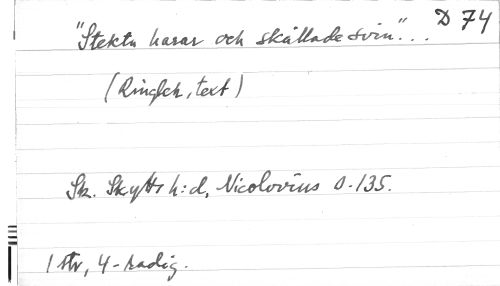 D 74
"Stekta harar och skållade svin"...
(Ringlek, text)
Sk. Skytts h:d, Nicolovius s. 135.
1 str, 4-radig.